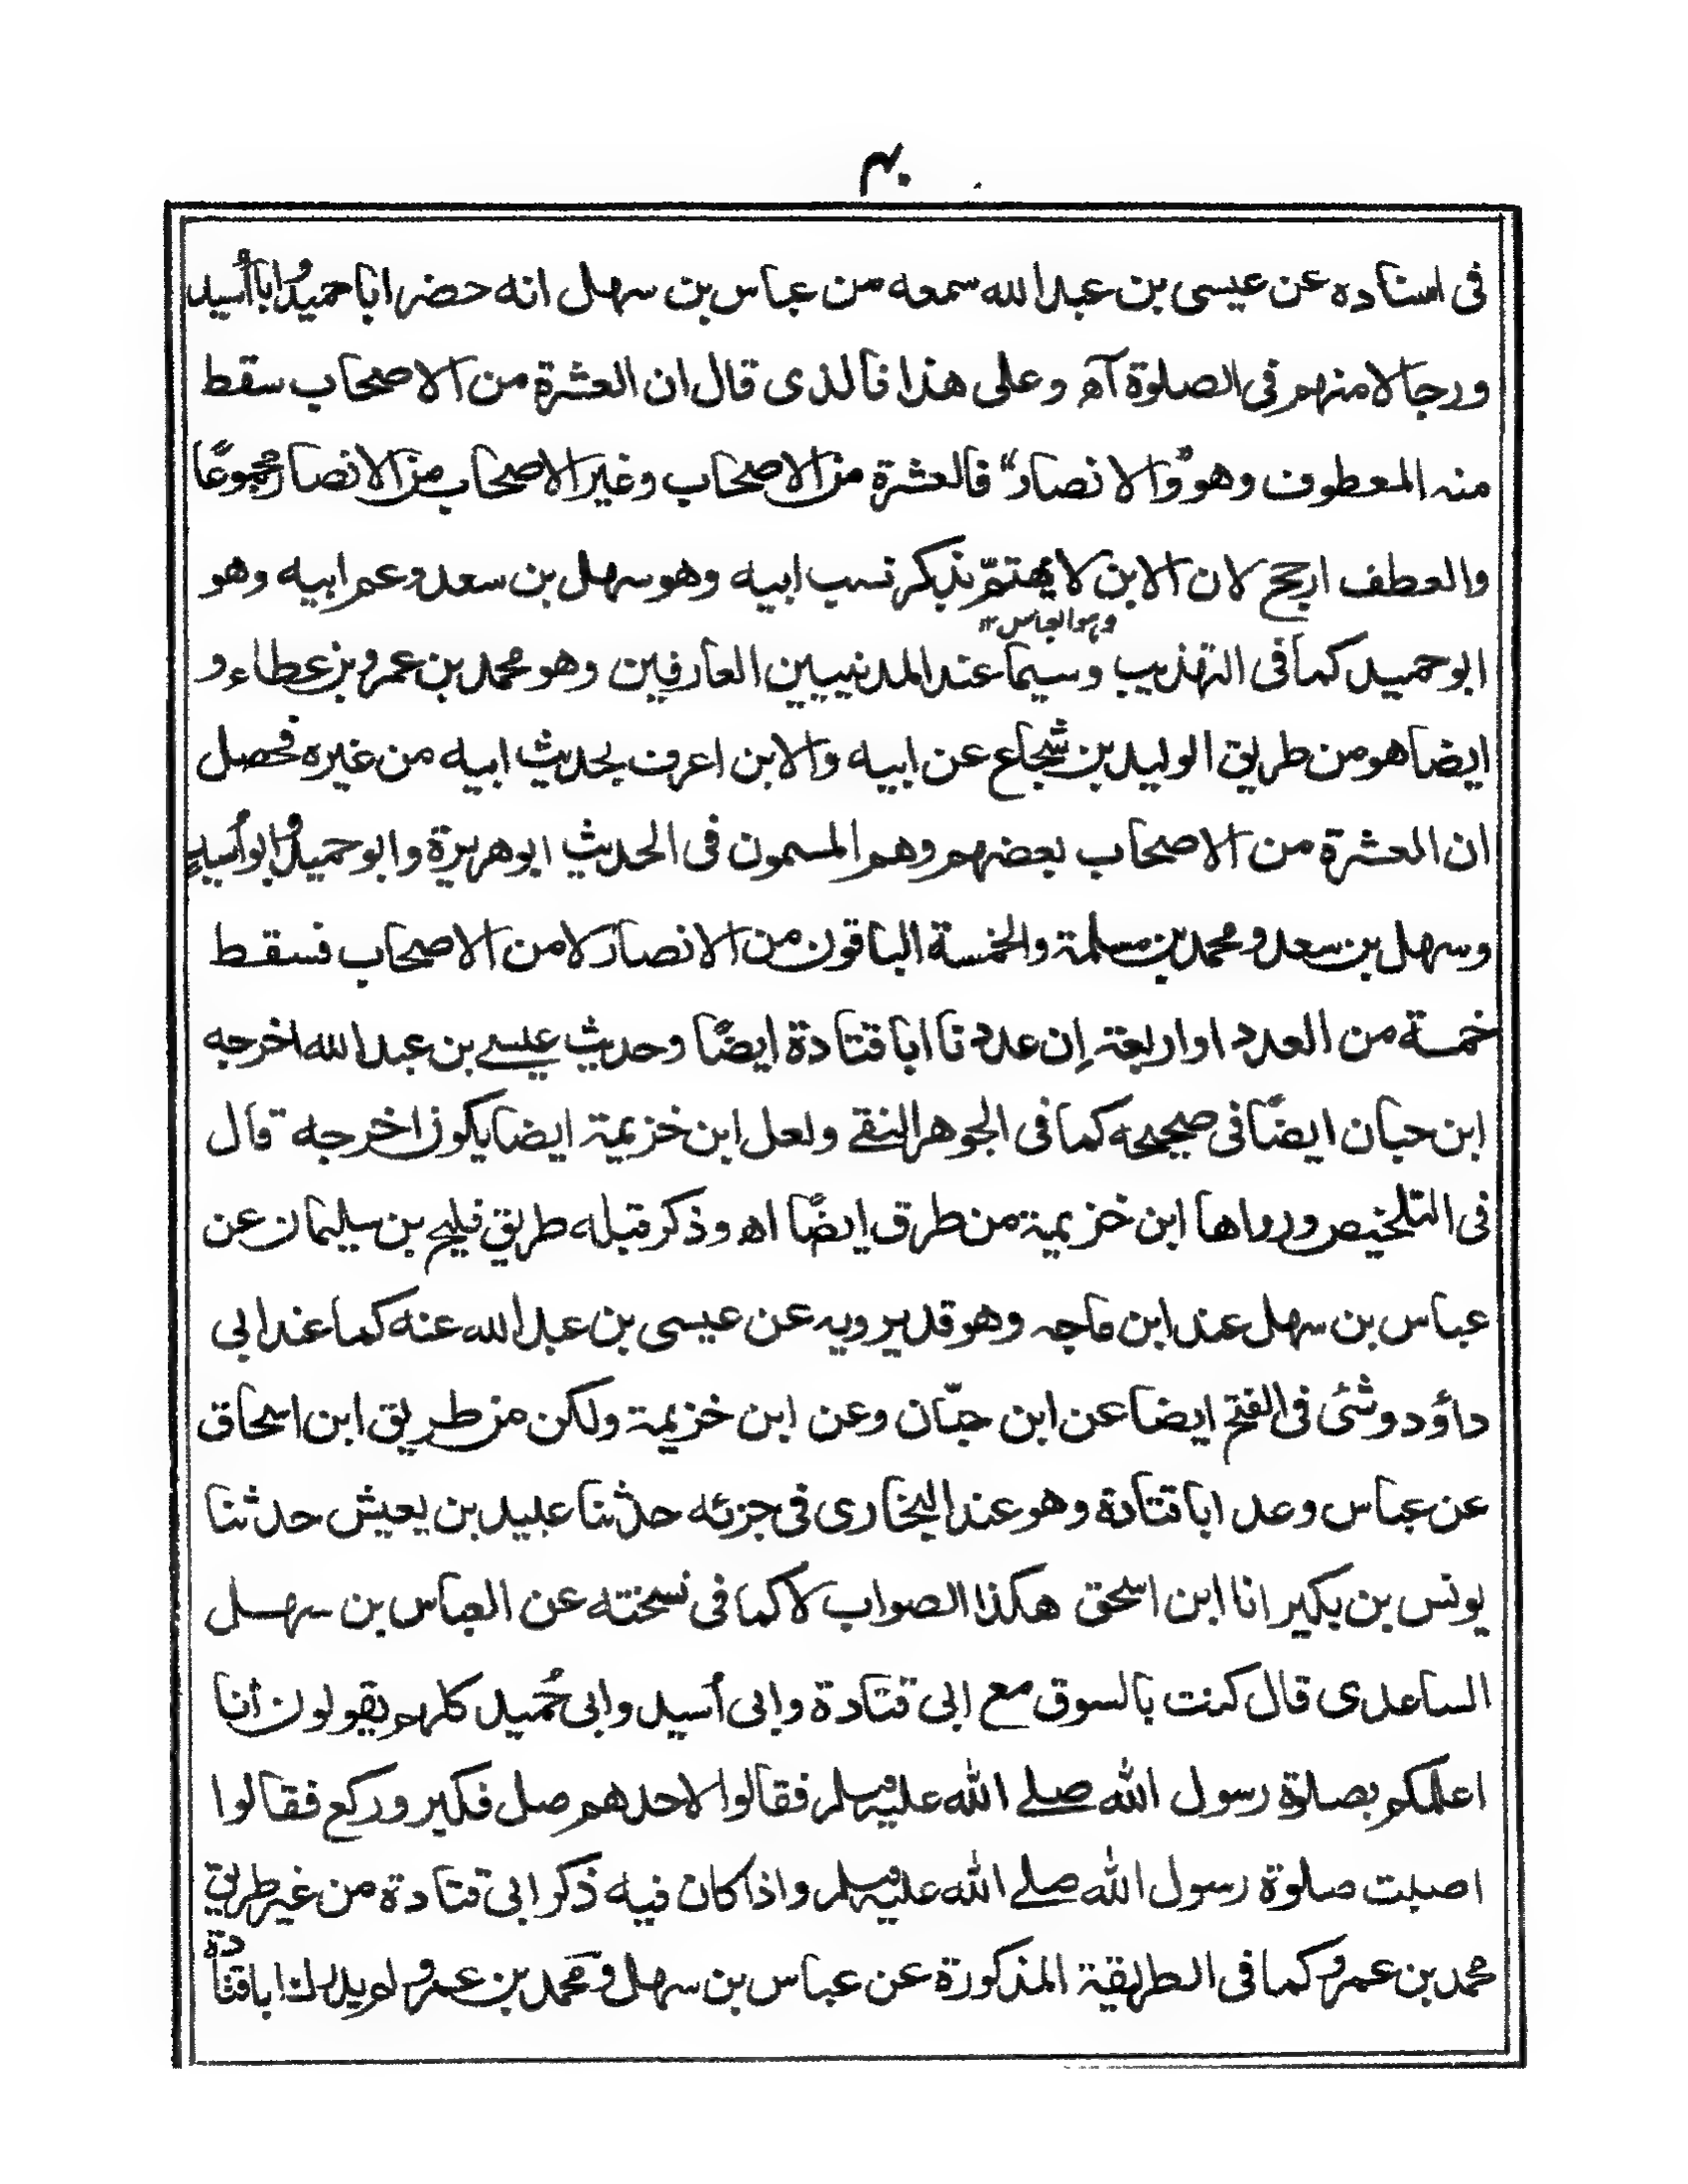 ۴۰
فی اسناده عن عیسی بن عبدالله سمعه من عباس بن سهل انه حضر ابا حمید و ابا أسید
ورجالا منهم فی الصلوة آه وعلی هذا فالذی قال ان العشرة من الاصحاب سقط
منه المعطوف وهو "والانصار" فالعشرة من الاصحاب وغیر الاصحاب من الانصار مجموعًا
والعطف ارجح لان الابن لا یهتمّ بذکر نسب ابیه وهو سهل بن سعد وعم ابیه وهو
وهو العباس ۱۲
ابوحمید کما فی التهذیب وسیما عند المدنیین العارفین وهو محمد بن عمرو بن عطاء و
ایضا هو من طریق الولید بن شجاع عن ابیه والابن اعرف بحدیث ابیه من غیره فحصل
ان العشرة من الاصحاب بعضهم وهم المسمون فی الحدیث ابوهریرة وابوحمید وابوأسید
وسهل بن سعد ومحمد بن مسلمة والخمسة الباقون من الانصار لا من الاصحاب فسقط
خمسة من العدد او اربعة إن عددنا ابا قتادة ایضًا وحدیث عیسے بن عبدالله اخرجه
ابن حبان ایضًا فی صحیحه کما فی الجوهر النقے ولعل ابن خزیمة ایضا یکون اخرجه قال
فی التلخیص ورواها ابن خزیمة من طرق ایضًا اه وذکر قبله طریق فلیح بن سلیمان عن
عباس بن سهل عند ابن ماجه وهو قد یرویه عن عیسی بن عبدالله عنه کما عند ابی
داؤد وشئ فی الفتح ایضا عن ابن حبّان وعن ابن خزیمة ولکن من طریق ابن اسحاق
عن عباس وعد ابا قتادة وهو عند البخاری فی جزئه حدثنا عبید بن یعیش حدثنا
یونس بن بکیر انا ابن اسحق هکذا الصواب لا کما فی نسخته عن العباس بن سهل
الساعدی قال کنت بالسوق مع ابی قتادة وابی أسید وابی حُمید کلهم یقولون أنا
اعلمکم بصلوة رسول الله صلے الله علیه وسلم فقالوا لاحدهم صل فکبر ورکع فقالوا
اصبت صلوة رسول الله صلے الله علیه وسلم واذا کان فیه ذکر ابی قتادة من غیر طریق
محمد بن عمرو کما فی الطریقة المذکورة عن عباس بن سهل ومحمد بن عمرو لم یدرك ابا قتادة